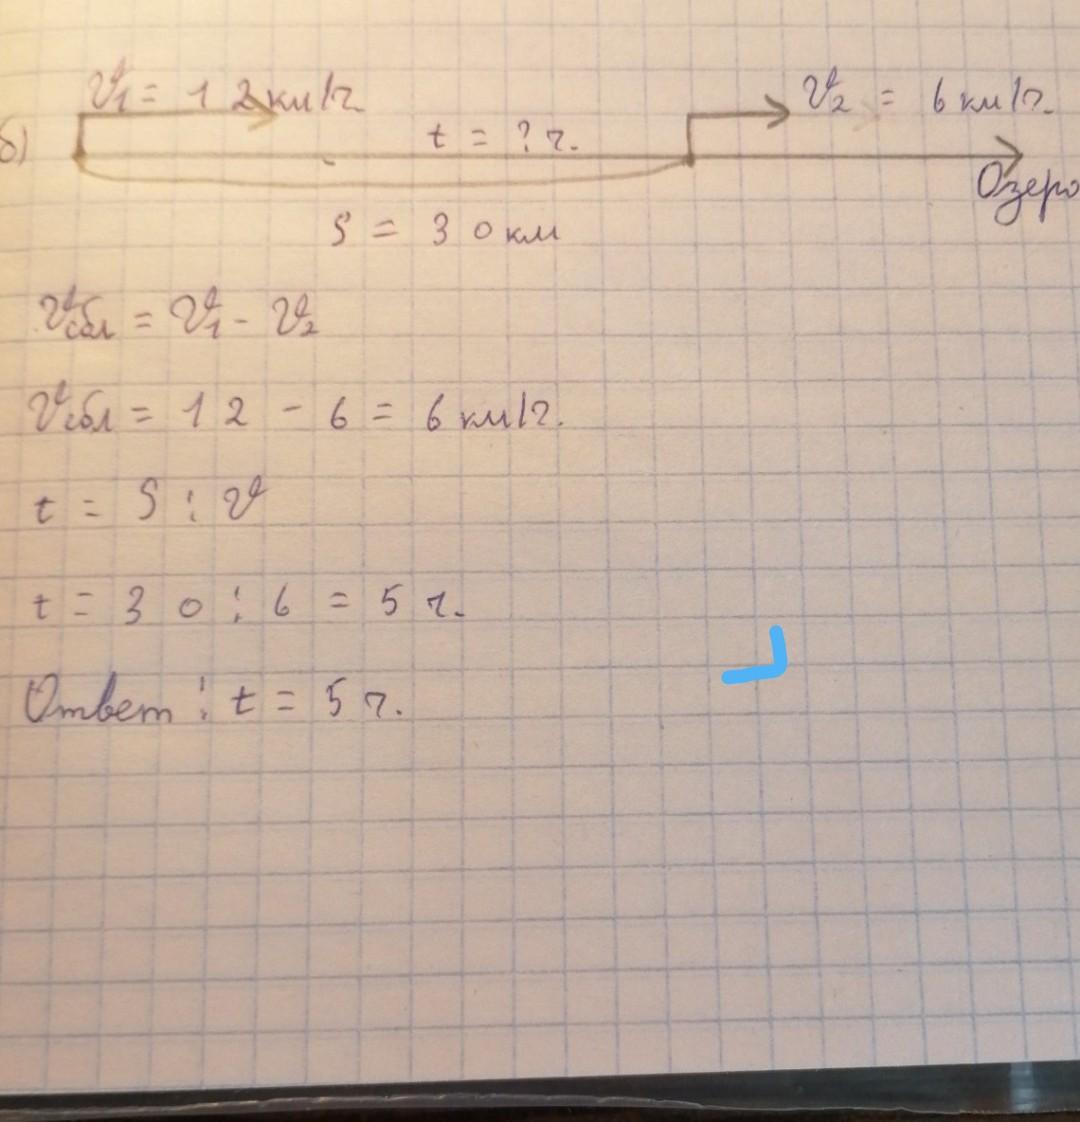 v₁ = 12 км/ч
v₂ = 6 км/ч.
б)
t = ? ч.
Озеро
S = 30 км
vсбл = v₁ - v₂
vсбл = 12 - 6 = 6 км/ч.
t = S : v
t = 30 : 6 = 5 ч.
Ответ : t = 5 ч.